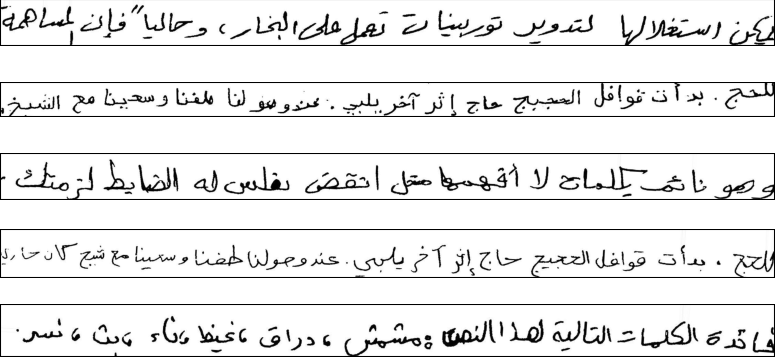 يمكن استغلالها لتدوير توربينات تعمل على البخار، وحاليا" فإن المساهمة
للحج. بدأت قوافل الحجيج حاج إثر آخر يلبي. عند وصولنا طفنا وسعينا مع الشيخ.
وهو نائم بكلمات لا أفهمها مثل انقض نفلس له الضابط لزمتك
للحج. بدأت قوافل الحجيج حاج إثر آخر يلبي. عند وصولنا طفنا وسعينا مع شيخ كان
فائدة الكلمات التالية لهذا النص: مشمش، دراق، غيظ، ناء، بث، نسر.